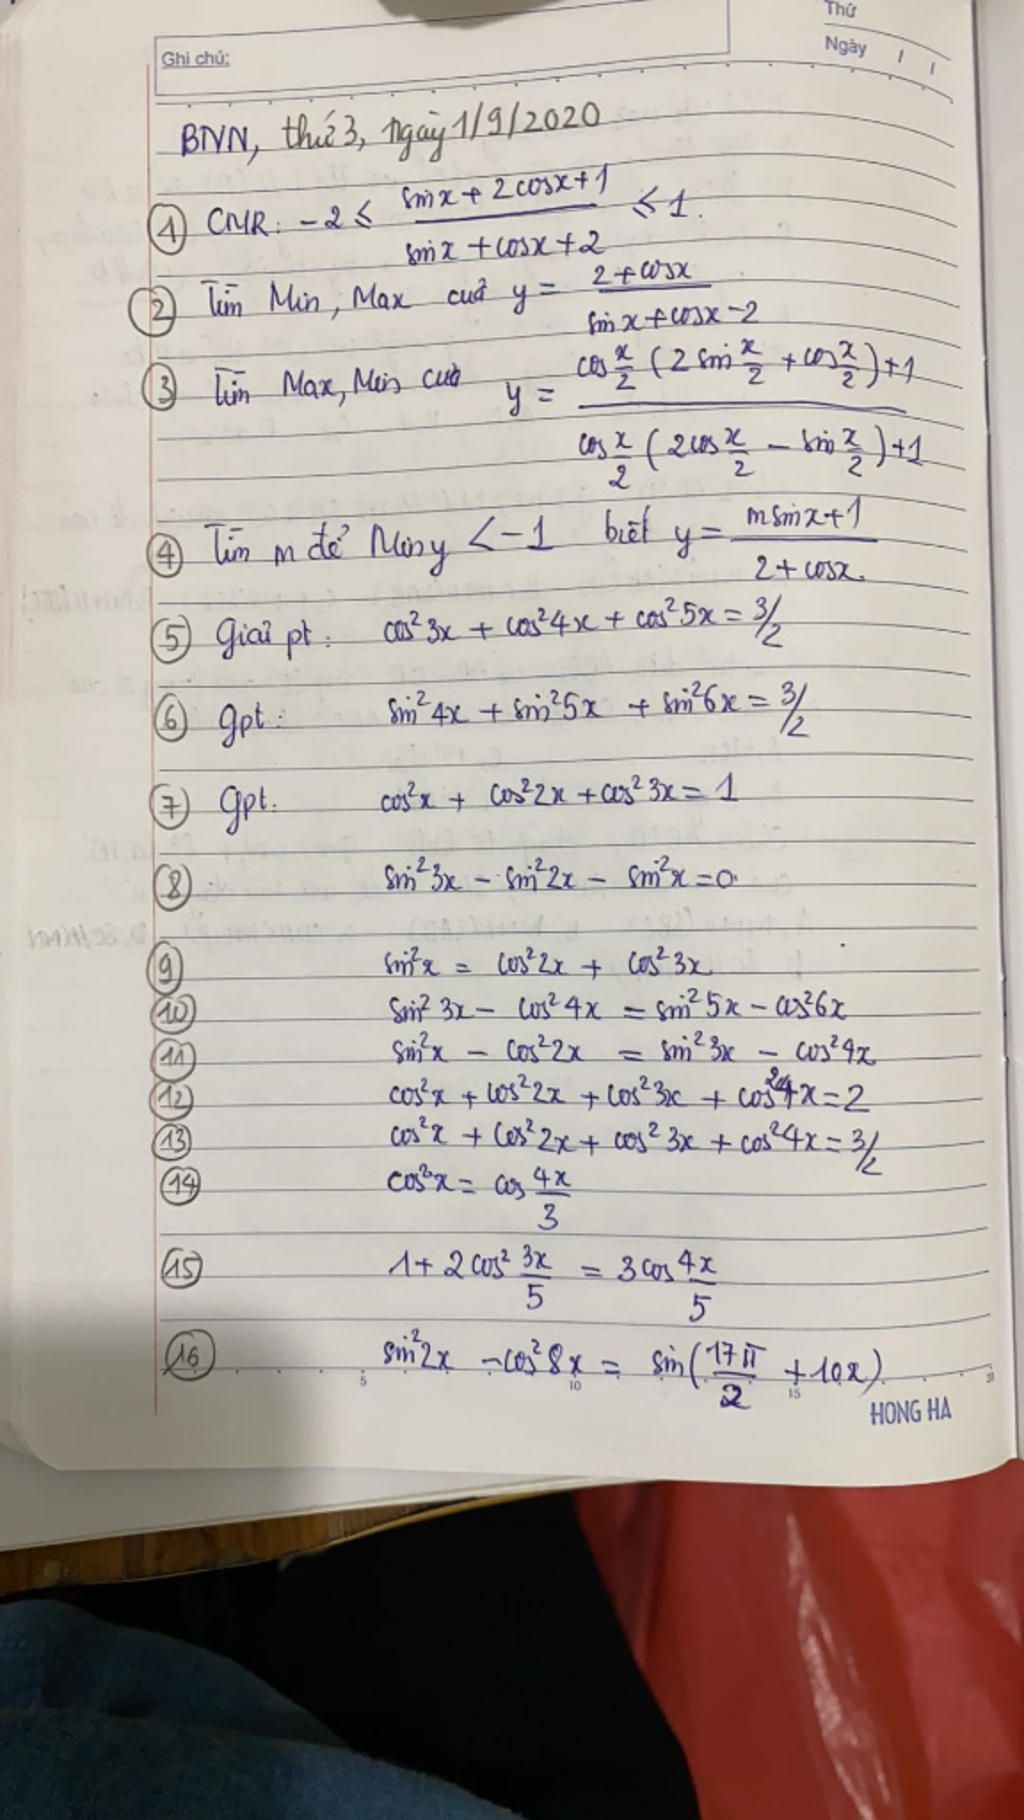 Thứ
Ghi chú:
Ngày / /
BTVN, thứ 3, ngày 1/9/2020
① CMR: -2 ≤ (sin x + 2cosx + 1)/(sin x + cosx + 2) ≤ 1.
② Tìm Min, Max cuả y = (2 + cosx)/(sin x + cosx - 2)
③ Tìm Max, Min cuả y = (cos x/2 (2 sin x/2 + cos x/2) + 1)/(cos x/2 (2cos x/2 - sin x/2) + 1)
④ Tìm m để Min y < -1 biết y = (m sin x + 1)/(2 + cosx)
⑤ Giải pt: cos²3x + cos²4x + cos²5x = 3/2
⑥ Gpt: sin²4x + sin²5x + sin²6x = 3/2
⑦ Gpt: cos²x + cos²2x + cos²3x = 1
⑧ sin²3x - sin²2x - sin²x = 0
⑨ sin²x = cos²2x + cos²3x
⑩ sin²3x - cos²4x = sin²5x - cos²6x
⑪ sin²x - cos²2x = sin²3x - cos²4x
⑫ cos²x + cos²2x + cos²3x + cos²4x = 2
⑬ cos²x + cos²2x + cos²3x + cos²4x = 3/2
⑭ cos²x = cos 4x/3
⑮ 1 + 2cos² 3x/5 = 3cos 4x/5
⑯ sin²2x - cos²8x = sin(17π/2 + 10x)
5 10 15 20
HONG HA